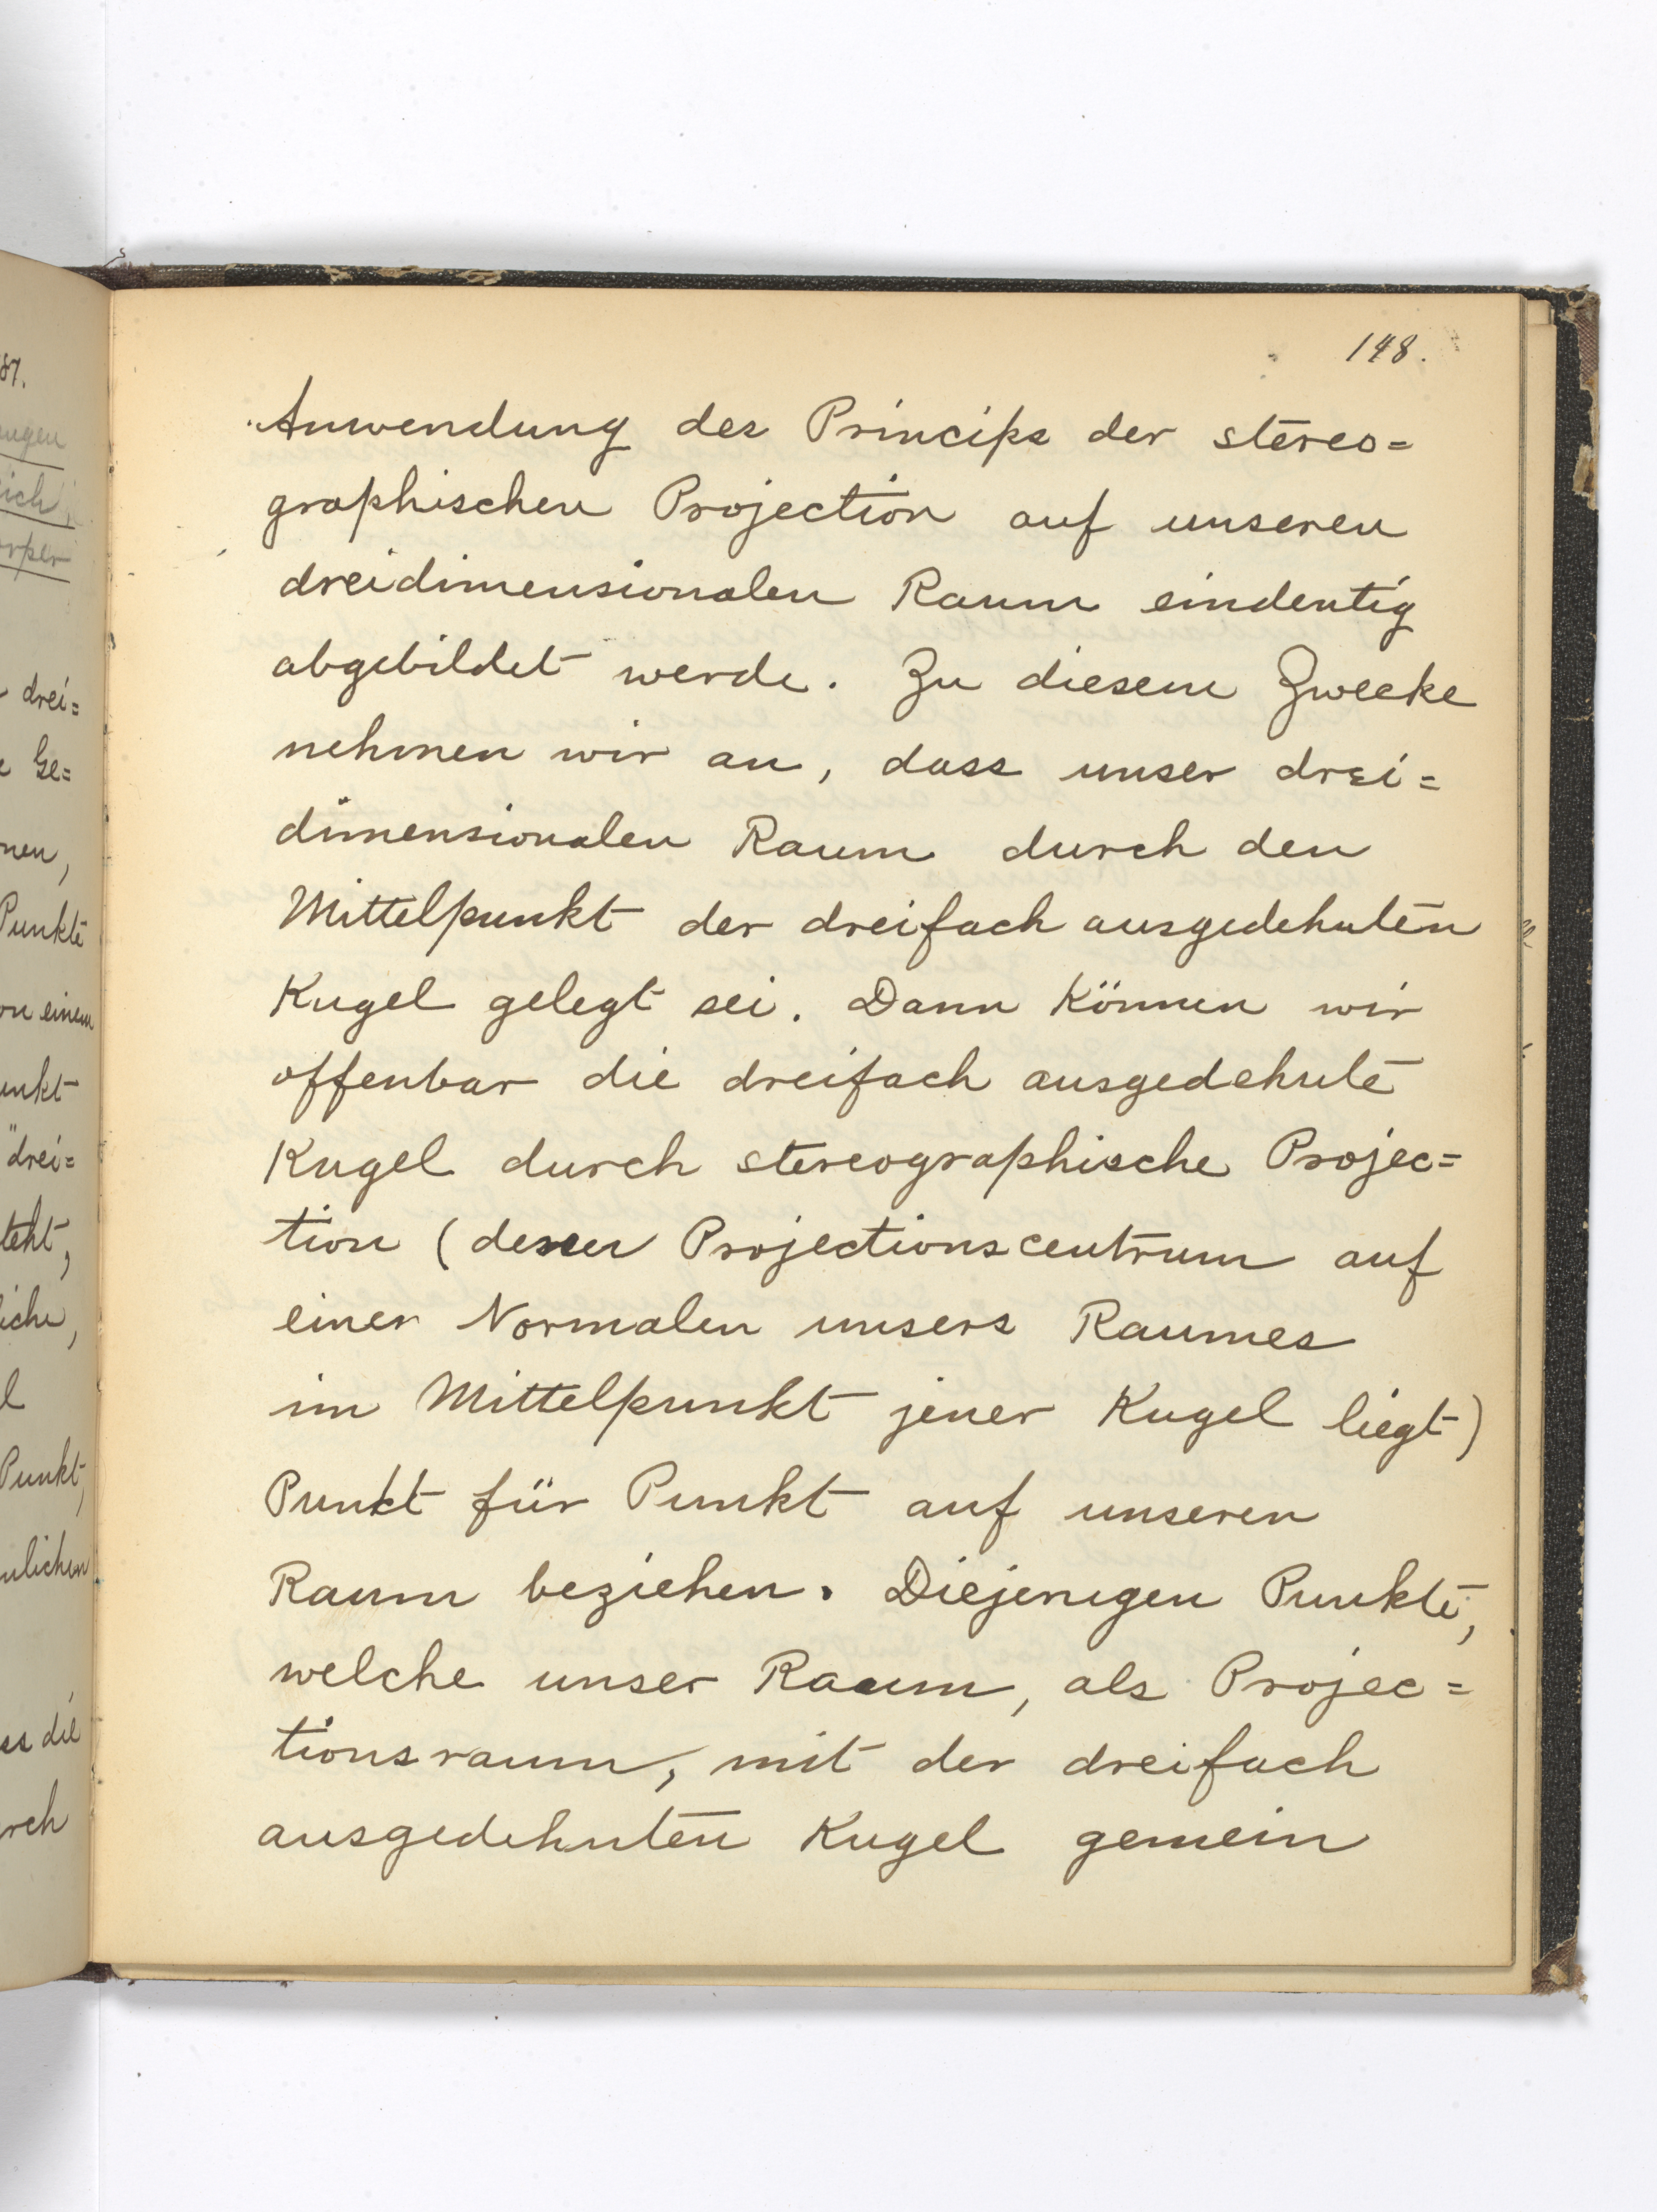 87.
ngen
ich
rper
drei=
Ge=
nen,
Punkte
on einem
unkt
"drei=
teht,
iche,
l
Punkt,
nlichen
ss die
rch
148.
Anwendung des Princips der stereo=
graphischen Projection auf unseren
dreidimensionalen Raum eindeutig
abgebildet werde. Zu diesem Zwecke
nehmen wir an, dass unser drei=
dimensionalen Raum durch den
Mittelpunkt der dreifach ausgedehnten
Kugel gelegt sei. Dann können wir
offenbar die dreifach ausgedehnte
Kugel durch stereographische Projec=
tion (deren Projectionscentrum auf
einer Normalen unsers Raumes
im Mittelpunkt jener Kugel liegt)
Punkt für Punkt auf unseren
Raum beziehen. Diejenigen Punkte,
welche unser Raum, als Projec=
tionsraum, mit der dreifach
ausgedehnten Kugel gemein